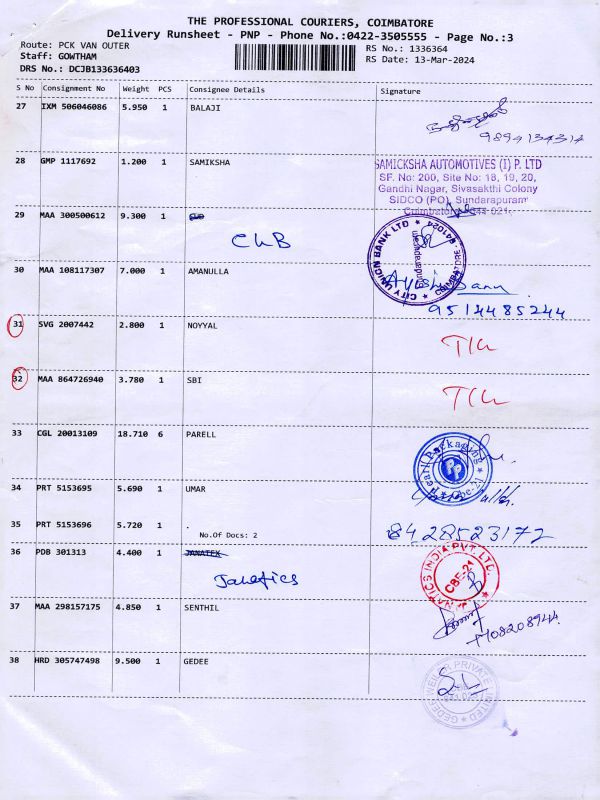 THE PROFESSIONAL COURIERS, COIMBATORE
Delivery Runsheet - PNP - Phone No.:0422-3505555 - Page No.:3
Route: PCK VAN OUTER
RS No.: 1336364
Staff: GOWTHAM
RS Date: 13-Mar-2024
DRS No.: DCJB133636403
S No Consignment No Weight PCS Consignee Details Signature
27 IXM 506046086 5.950 1 BALAJI
9894134314
28 GMP 1117692 1.200 1 SAMIKSHA
SAMICKSHA AUTOMOTIVES (I) P. LTD
SF. No: 200, Site No: 18, 19, 20,
Gandhi Nagar, Sivasakthi Colony
SIDCO (PO), Sundarapuram
Coimbatore 641 021.
29 MAA 300500612 9.300 1
CUB
CITY UNION BANK LTD
COIMBATORE
641024
30 MAA 108117307 7.000 1 AMANULLA
9514485244
31 SVG 2007442 2.800 1 NOYYAL
32 MAA 864726940 3.780 1 SBI
33 CGL 20013109 18.710 6 PARELL
Pearl Packaging
PP
34 PRT 5153695 5.690 1 UMAR
35 PRT 5153696 5.720 1 .
No.Of Docs: 2
8428523172
36 PDB 301313 4.400 1 JANATEX
Janatics
JANATICS INDIA PVT. LTD.
CBE-21
37 MAA 298157175 4.850 1 SENTHIL
38 HRD 305747498 9.500 1 GEDEE
GEDEE WEILER PRIVATE LIMITED